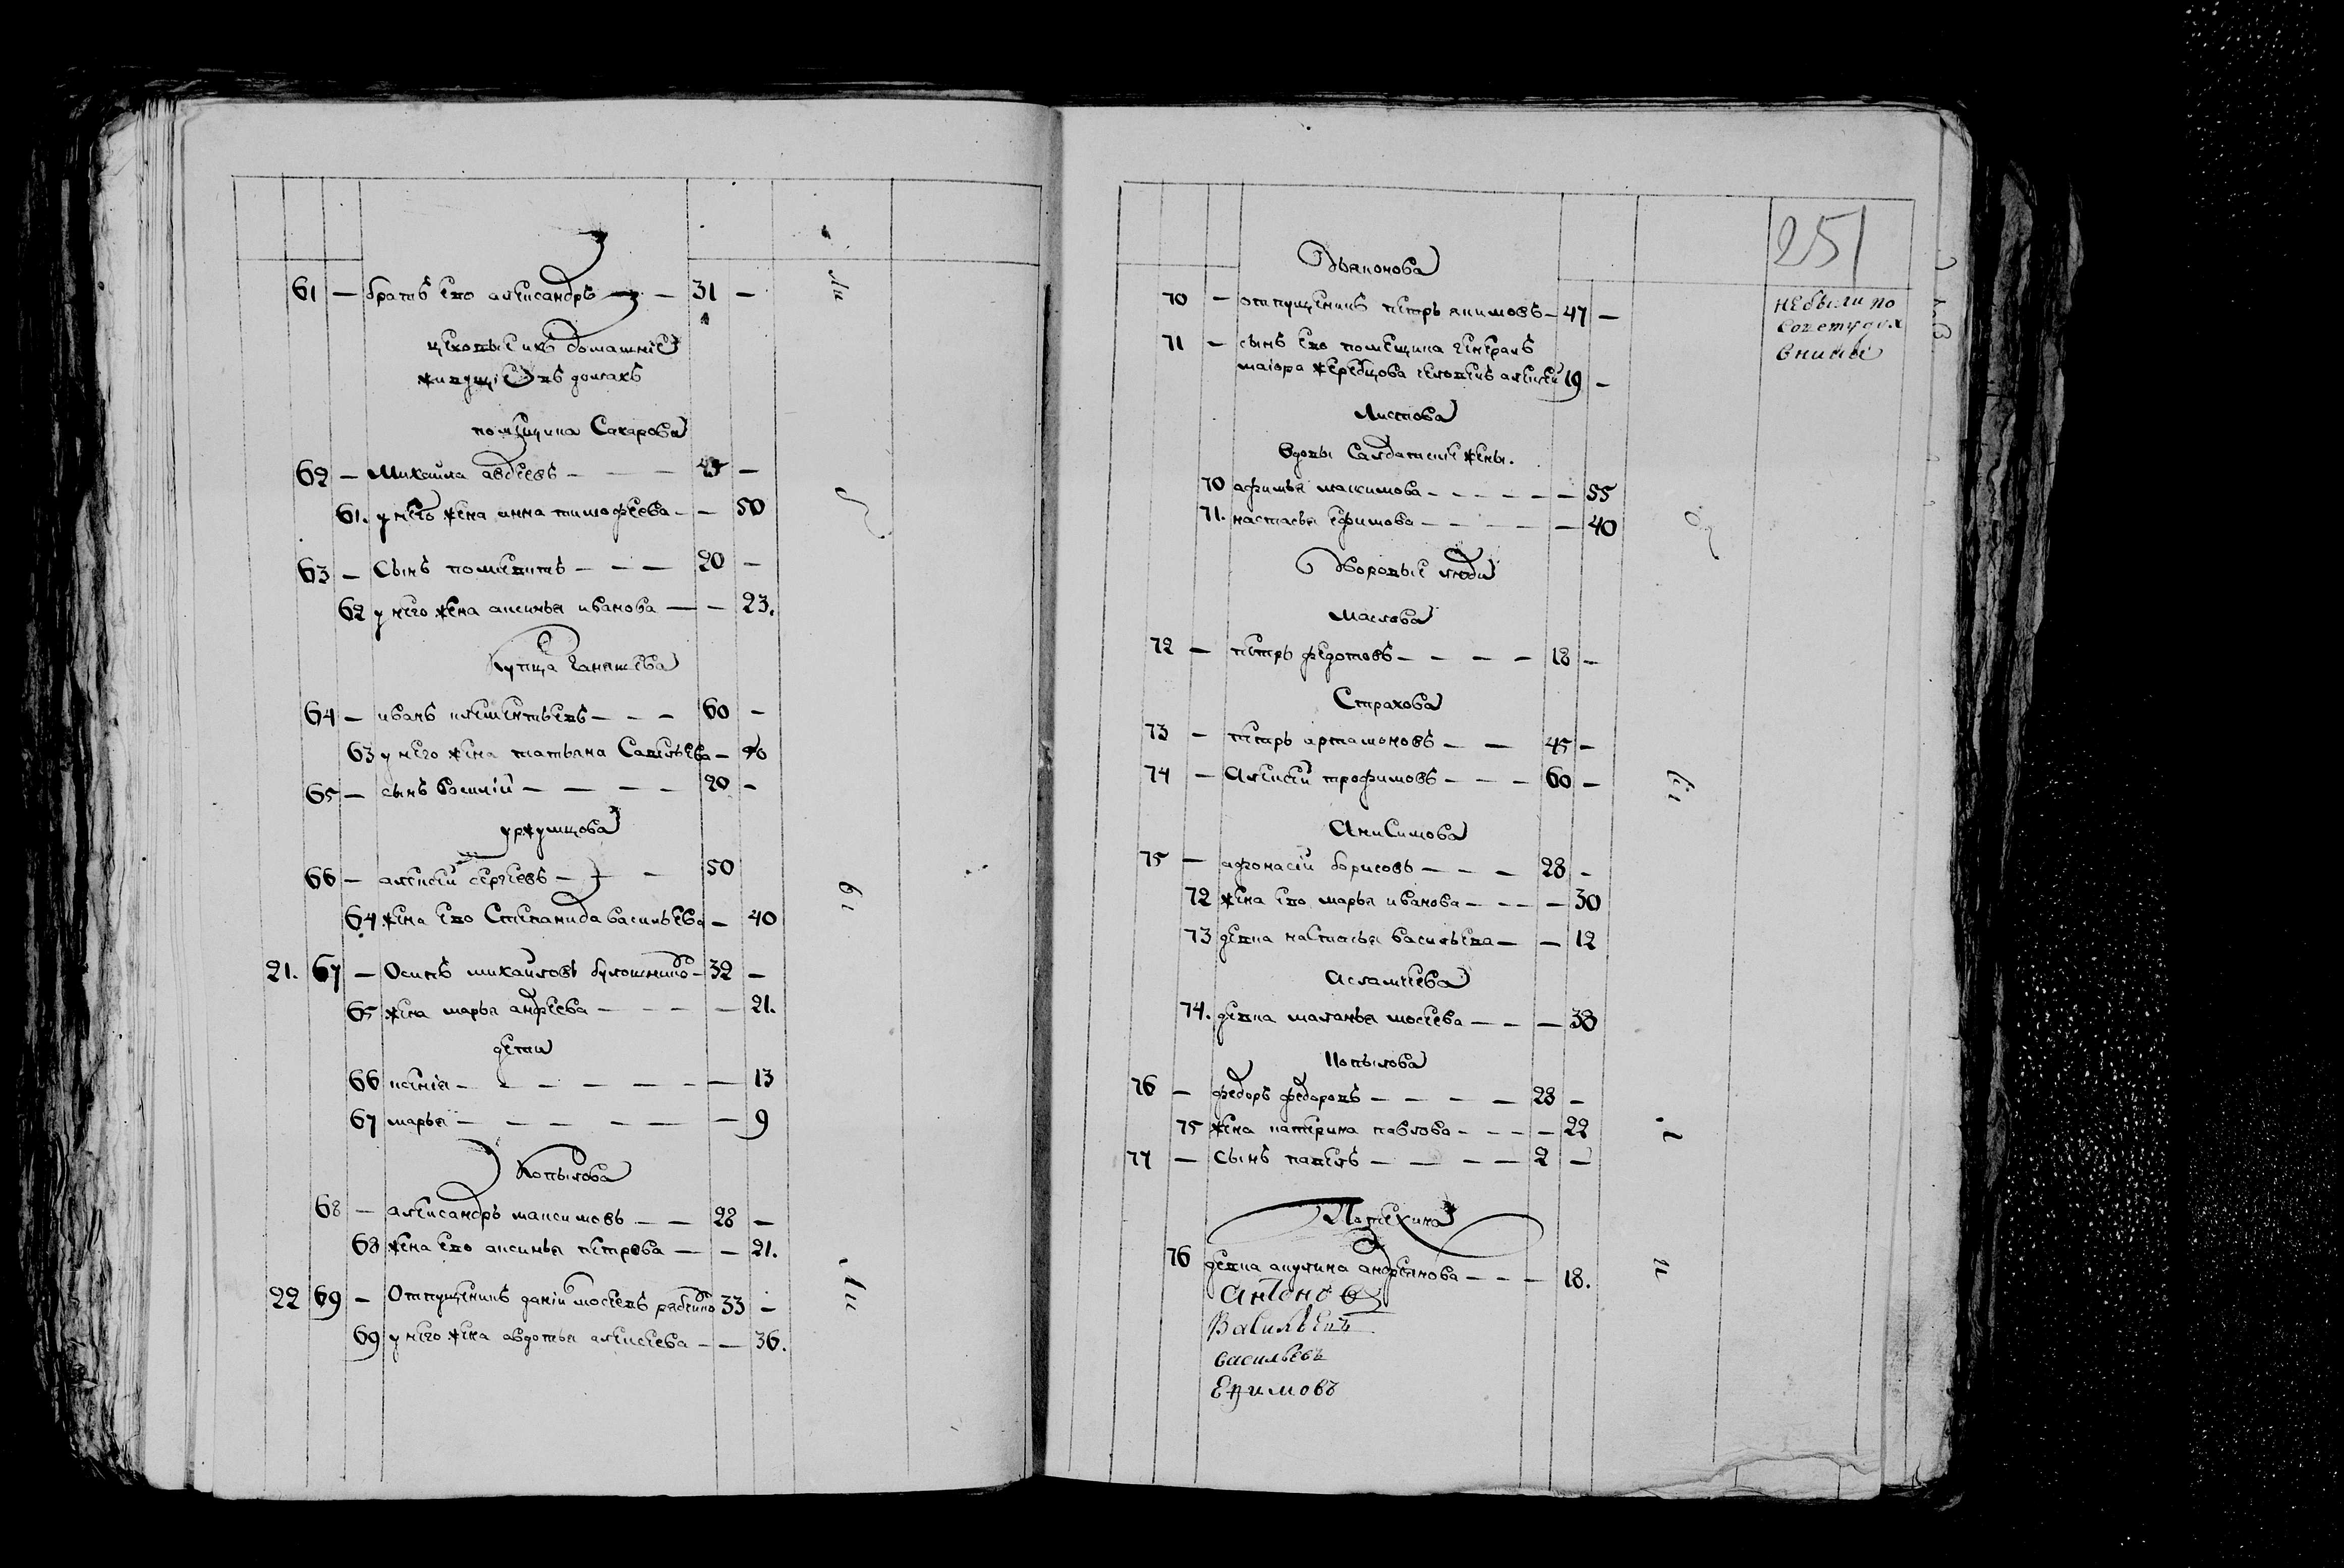 61 — братъ ево александръ — 31 —
цеховые ихъ домашнїе
живущїе въ домахъ
помещика Сахарова
62 — Михайла авдеевъ — —
61. у него жена анна тимофеева — — 50
63 — Сынъ — — — 20 —
62 у него жена аксинья иванова — — 23.
Купца
64 — иванъ клементьевъ — — — 60 —
63 у него жена татьяна Савельева —
65 — сынъ василїй — — — — 20 —
уржумцова
66 — алексей сергеевъ — — 50
64 жена ево Степанида васильева — 40
21. 67 — Осипъ михайловъ булошникъ — 32 —
65 жена марья андреева — — — — 21.
дети
66 — — — — — — 13
67 марья — — — — — — 9
Копылова
68 — александръ максимовъ — — 28 —
68 жена ево аксинья петрова — — 21.
22 69 — Отпущеникъ данїй мосеевъ 33 —
69 у него жена авдотья алексеева — — 36.
251
Дьяконова
70 — отпущеникъ петръ якимовъ — 47 —
71 — сынъ ево помещика генералъ
маїора жеребцова человекъ алексей 19 —
не были по
совету дух
Листова
вдовы Салдатскїе жены.
70 афимья максимова — — — — — — 55
71. настасья ефимова — — — — — 40
Дворовые люди
Маслова
72 — петръ федотовъ — — — — 18 —
Страхова
73 — петръ артамоновъ — — 45 —
74 — Алексей трофимовъ — — — 60 —
Анисимова
75 — афонасїй борисовъ — — — 28 —
72 жена ево марья иванова — — — — 30
73 девка настасья васильева — — 12
Асламчеева
74. девка маланья мосеева — — — 38
Копылова
76 — федоръ федоровъ — — — — 28 —
75 жена катерина павлова — — — — 22
77 — Сынъ павелъ — — — — 2 —
Потехина
76 девка акулина андреянова — — — 18.
Антоновъ
Васильевъ
васильевъ
Ефимовъ